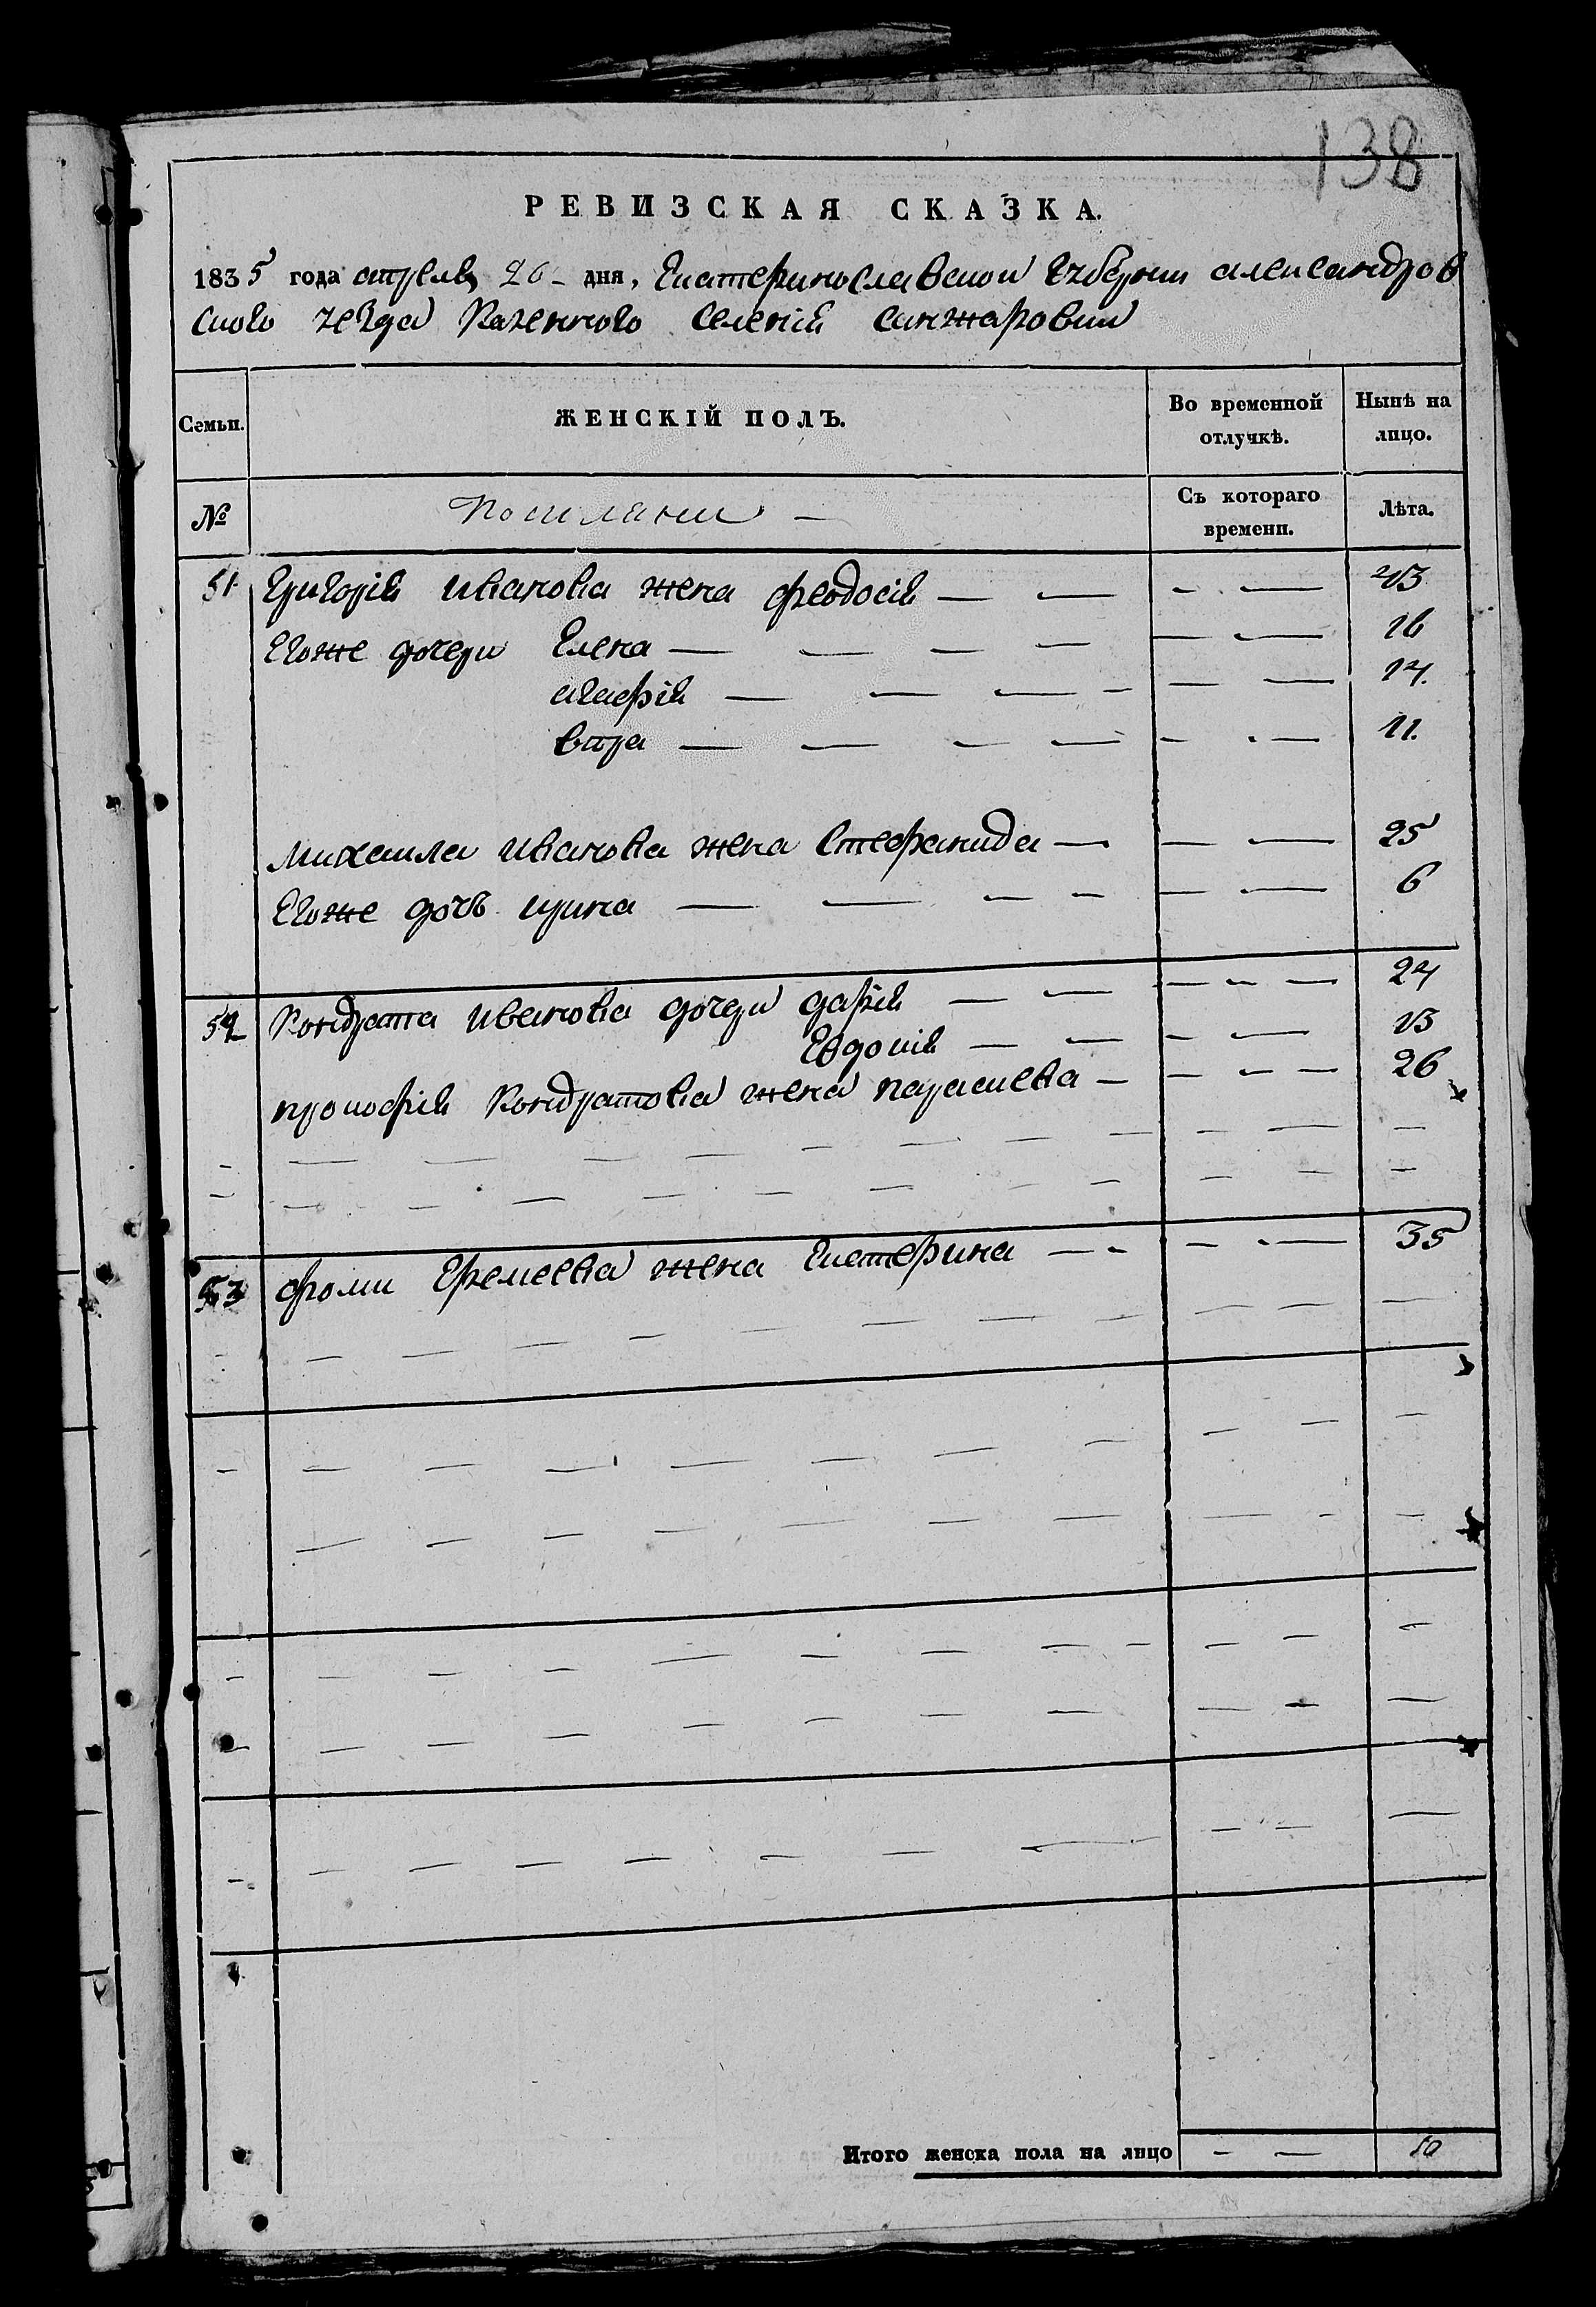 138
РЕВИЗСКАЯ СКАЗКА.
1835 года апреля 26 дня, Екатеринославской губернии александров
ского уезда Казенного селения санжаровки
Семьи. ЖЕНСКІЙ ПОЛЪ. Во временной отлучкѣ. Нынѣ на лицо.
№ Поселяни — Съ котораго времени. Лѣта.
51 Григорія иванова жена феодосія — — - — 43
Егоже дочери Елена — — — — — — 16
агафія — — — - — — 14.
вира — — — — - - — 11.
михаила иванова жена Стефанида — — — 25
Егоже дочь ирина — — — - — — 6
52 Кондрата иванова дочери дарія — — — - — 24
Евдокія — — - — — 13
прокофія Кондратова жена параскева — - — — 26
53 фоми Еремеева жена Екатерина — - — - — 35
Итого женска пола на лицо - — 10